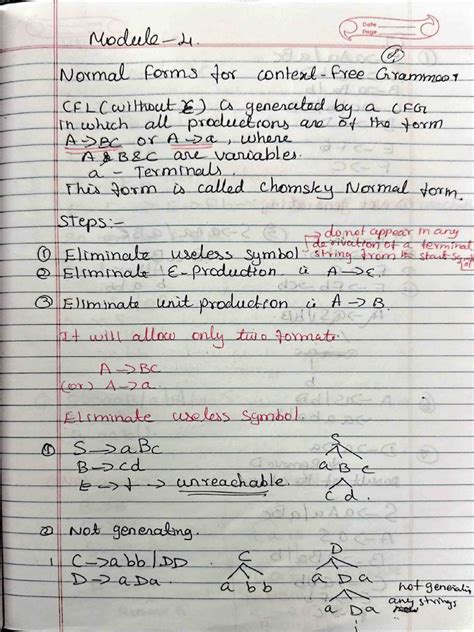 Date
Page
Module-4.
Normal forms for context-free Grammar
CFL (without ε) is generated by a CFG
in which all productions are of the form
A→BC or A→a, where
A & B & C are variables.
a - Terminals.
This form is called Chomsky Normal form.
Steps:-
do not appear in any
① Eliminate useless symbol
derivation of a terminal
string from its start
② Eliminate ε-Production is A→ε.
③ Eliminate unit production is A→B.
It will allow only two formats
A→BC
(or) A→a.
Eliminate useless symbol
① S→aBc
B→cd
E→f → unreachable.
S
a B c
c d.
② Not generating.
1. C→abb/DD
D→aDa
C
a b b
D
a D a
a Da
not
any strings